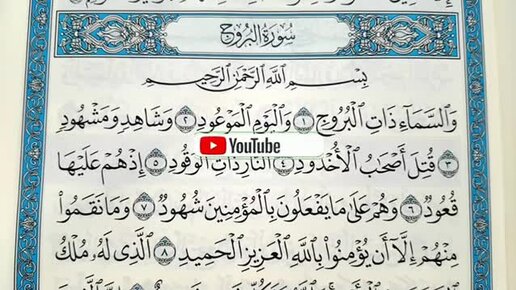 سُورَةُ البُرُوجِ
بِسْمِ اللَّهِ الرَّحْمَٰنِ الرَّحِيمِ
وَالسَّمَاءِ ذَاتِ الْبُرُوجِ ١ وَالْيَوْمِ الْمَوْعُودِ ٢ وَشَاهِدٍ وَمَشْهُودٍ
YouTube
٣ قُتِلَ أَصْحَابُ الْأُخْدُودِ ٤ النَّارِ ذَاتِ الْوَقُودِ ٥ إِذْ هُمْ عَلَيْهَا
قُعُودٌ ٦ وَهُمْ عَلَىٰ مَا يَفْعَلُونَ بِالْمُؤْمِنِينَ شُهُودٌ ٧ وَمَا نَقَمُوا
مِنْهُمْ إِلَّا أَن يُؤْمِنُوا بِاللَّهِ الْعَزِيزِ الْحَمِيدِ ٨ الَّذِي لَهُ مُلْكُ